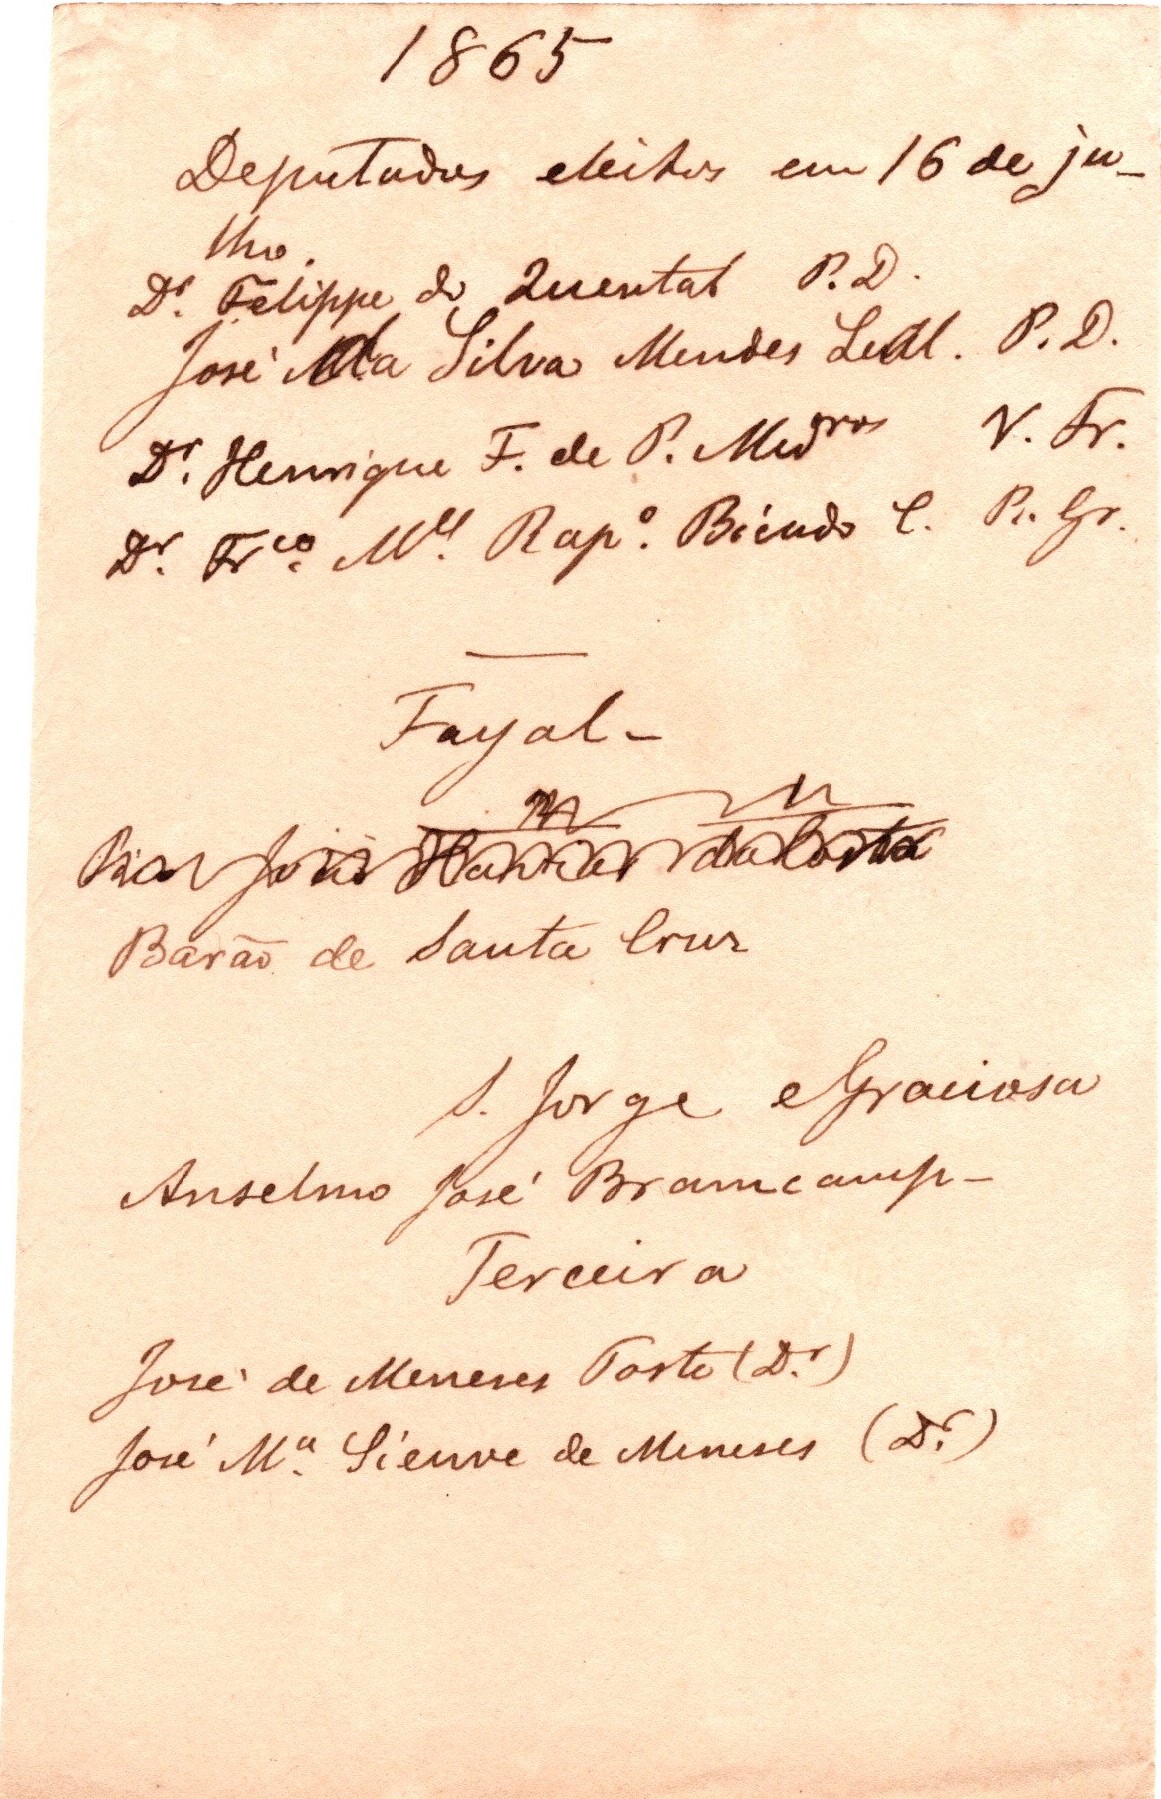 1865
Deputados eleitos em 16 de ju-
lho.
Dr. Felippe do Quental P.D.
José da Silva Mendes Leal. P.D.
Dr. Henrique F. de P. Medros V. Fr.
Dr. Frco. Mel. Rapo. Bicudo C. R. Gr.
Fayal-
Barão de Santa Cruz
S. Jorge e Graciosa
Anselmo José Bramcamp-
Terceira
José de Meneses Toste (Dr.)
José Ma. Sieuve de Meneses (Dr.)